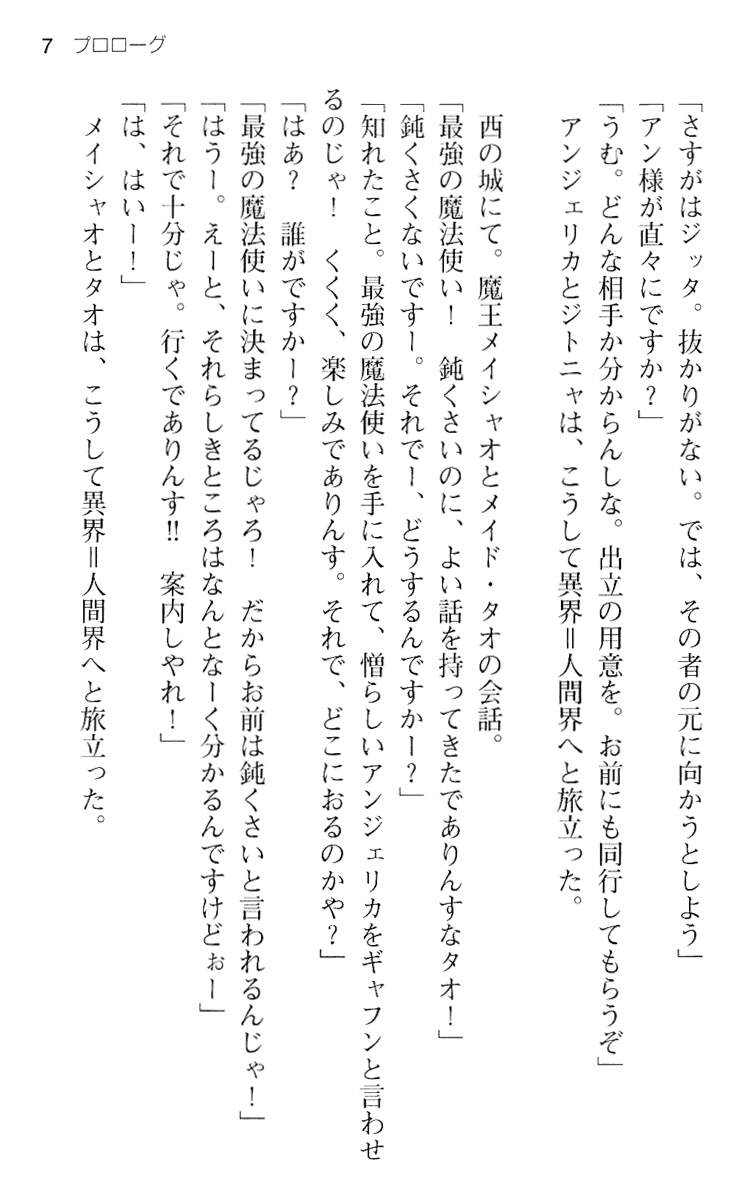 7 プロローグ
「さすがはジッタ。抜かりがない。では、その者の元に向かうとしよう」
「アン様が直々にですか？」
「うむ。どんな相手か分からんしな。出立の用意を。お前にも同行してもらうぞ」
アンジェリカとジトニャは、こうして異界＝人間界へと旅立った。
西の城にて。魔王メイシャオとメイド・タオの会話。
「最強の魔法使い！　鈍くさいのに、よい話を持ってきたでありんすなタオ！」
「鈍くさくないですー。それでー、どうするんですかー？」
「知れたこと。最強の魔法使いを手に入れて、憎らしいアンジェリカをギャフンと言わせ
るのじゃ！　くくく、楽しみでありんす。それで、どこにおるのかや？」
「はあ？　誰がですかー？」
「最強の魔法使いに決まってるじゃろ！　だからお前は鈍くさいと言われるんじゃ！」
「はうー。えーと、それらしきところはなんとなーく分かるんですけどぉー」
「それで十分じゃ。行くでありんす‼　案内しやれ！」
「は、はいー！」
メイシャオとタオは、こうして異界＝人間界へと旅立った。